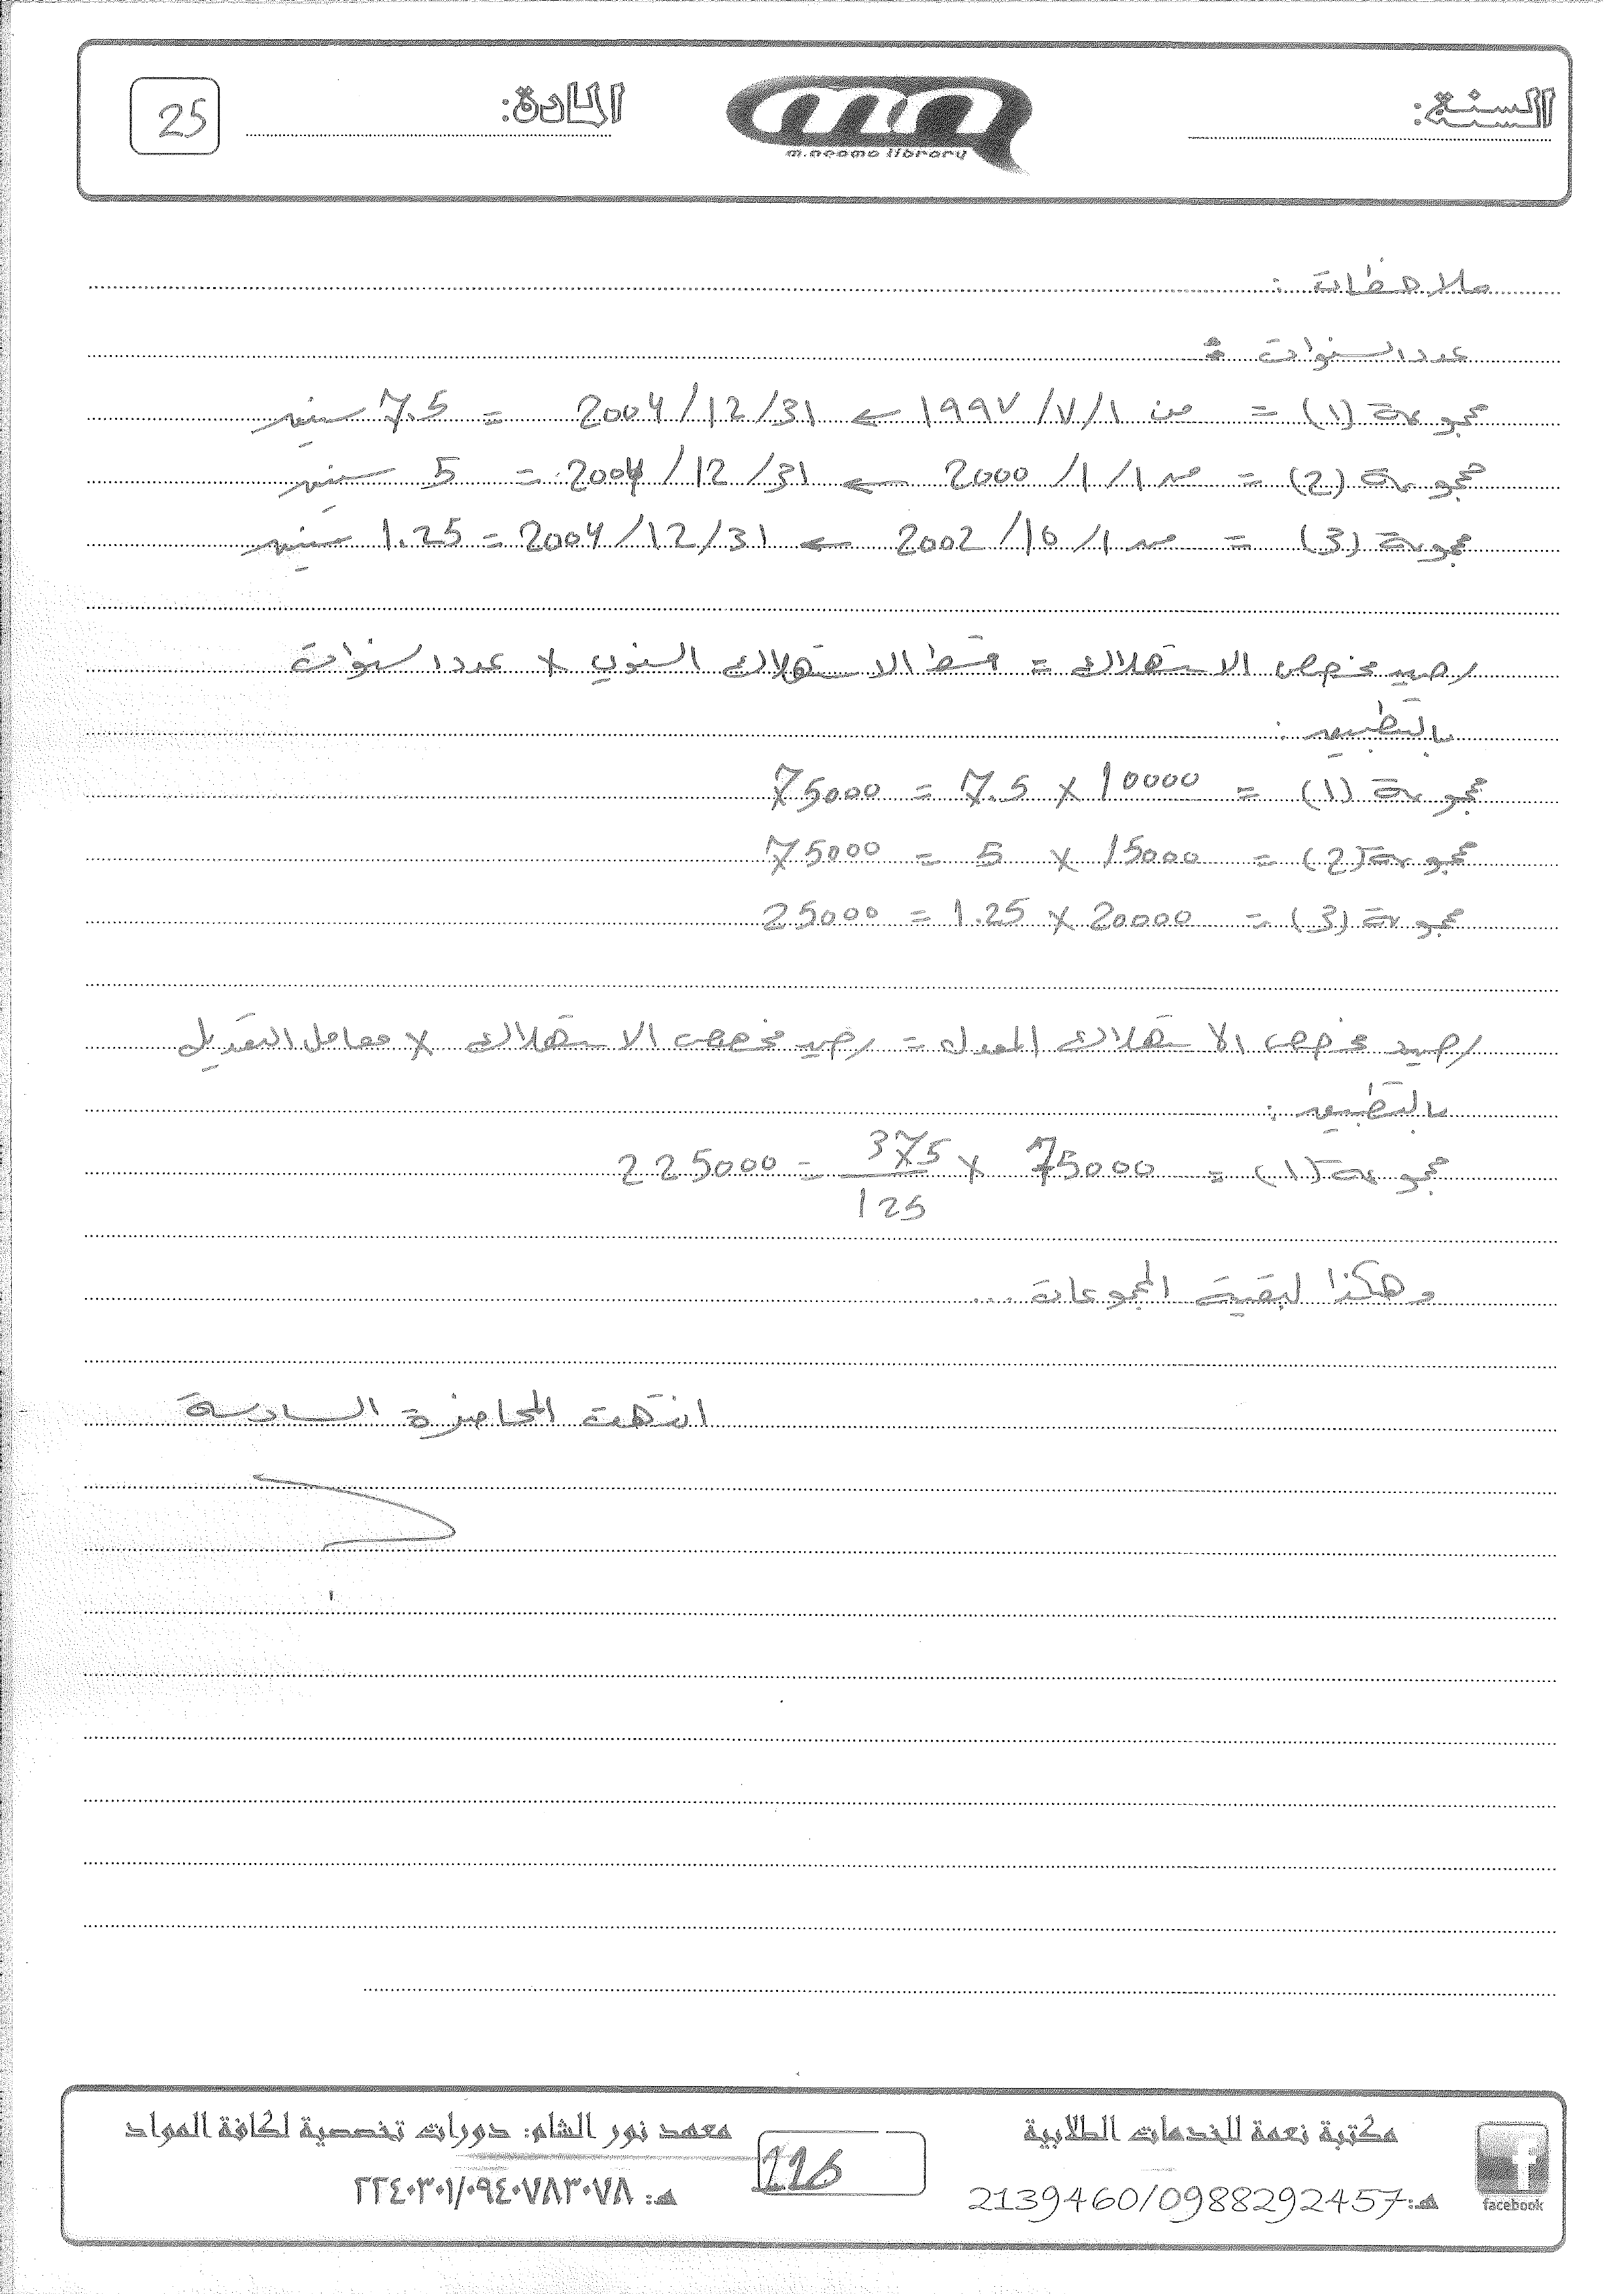 السنة:
m.neama library
المادة:
25
ملاحظات :
عدد السنوات :
مجموعة (١) = من ١/٧/١٩٩٧ ← 31/12/2004 = 7.5 سنين
مجموعة (2) = من ١/١/2000 ← 31/12/2004 = 5 سنين
مجموعة (3) = من ١/10/2002 ← 31/12/2004 = 1.25 سنين
رصيد مخصص الاستهلاك = قسط الاستهلاك السنوي × عدد السنوات
بالتطبيق :
مجموعة (١) = 10000 × 7.5 = 75000
مجموعة (2) = 15000 × 5 = 75000
مجموعة (3) = 20000 × 1.25 = 25000
رصيد مخصص الاستهلاك المعدل = رصيد مخصص الاستهلاك × معامل التعديل
بالتطبيق :
مجموعة (١) = 75000 × 375/125 = 225000
وهكذا لبقية المجموعات ...
انتهت المحاضرة السادسة
مكتبة نعمة للخدمات الطلابية
هـ: 2139460/0988292457
facebook
116
معهد نور الشام: دورات تخصصية لكافة المواد
هـ: ٢٢٤٠٣٠١/٠٩٤٠٧٨٣٠٧٨